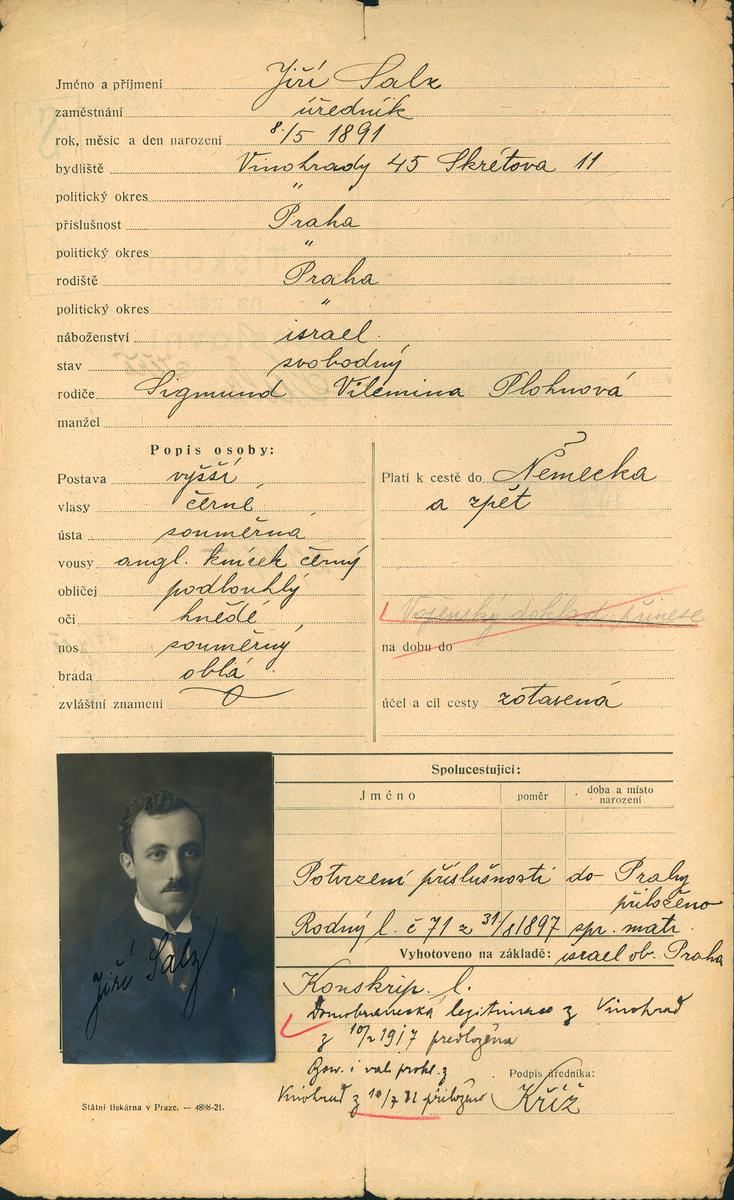 Jméno a příjmení Jiří Salz
zaměstnání úředník
rok, měsíc a den narození 8./5 1891
bydliště Vinohrady 45 Skrétova 11
politický okres "
příslušnost Praha
politický okres "
rodiště Praha
politický okres "
náboženství israel.
stav svobodný
rodiče Sigmund Vilemina Plohnová
manžel
Popis osoby:
Postava vyšší
vlasy černé
ústa souměrná
vousy angl. knírek černý
obličej podlouhlý
oči hnědé
nos souměrný
brada oblá
zvláštní znamení
Platí k cestě do Německa
a zpět
Vojenský doklad přinese
na dobu do
účel a cíl cesty zotavená
Spolucestující:
Jméno poměr doba a místo narození
Potvrzení příslušnosti do Prahy
přiloženo
Rodný l. č 71 z 31/1 1897 spr. matr.
Vyhotoveno na základě: israel ob. Praha
Konskrip. l.
Domobranecká legitimace z Vinohrad
z 10/2 1917 předložena
prohl. z
Podpis úředníka:
Vinohrad z přiloženo Kříž
Jiří Salz
Státní tiskárna v Praze. — 4898-21.